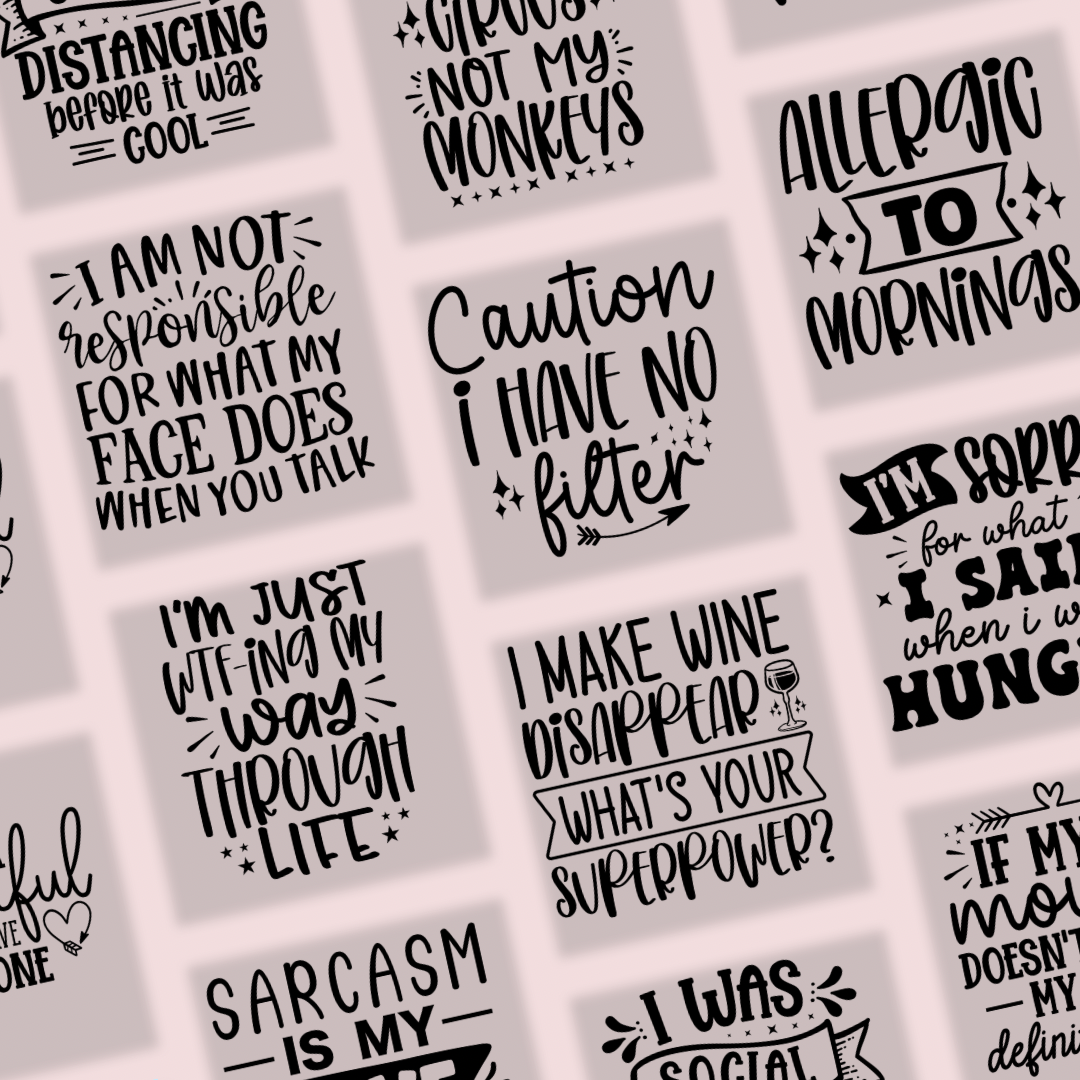 DISTANCING
before it was
COOL
NOT MY
MONKEYS
ALLERGIC
TO
MORNINGS
I AM NOT
responsible
FOR WHAT MY
FACE DOES
WHEN YOU TALK
Caution
i HAVE NO
filter
I'M
for what
when i
I'M JUST
WTF-ING MY
way
THROUGH
LIFE
I MAKE WINE
DISAPPEAR
WHAT'S YOUR
SUPERPOWER?
IF MY
DOESN'T
MY
SARCASM
IS MY
I WAS
SOCIAL